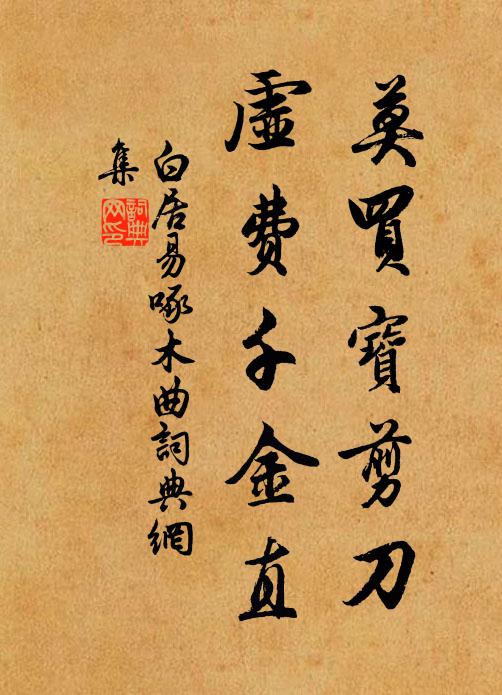 莫買寶剪刀
虛費千金直
白居易啄木曲詞典網
集
詞典
网印